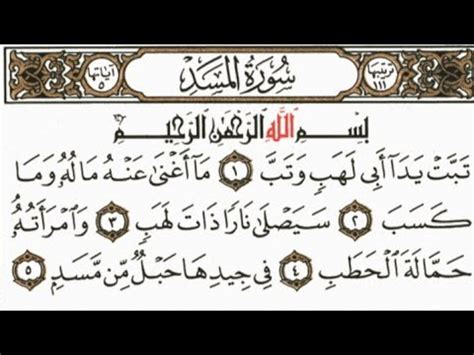 ترتيبها ١١١ سُورَةُ المَسَدِ آياتها ٥
بِسْمِ اللَّهِ الرَّحْمَٰنِ الرَّحِيمِ
تَبَّتْ يَدَآ أَبِى لَهَبٍ وَتَبَّ ١ مَآ أَغْنَىٰ عَنْهُ مَالُهُۥ وَمَا
كَسَبَ ٢ سَيَصْلَىٰ نَارًا ذَاتَ لَهَبٍ ٣ وَٱمْرَأَتُهُۥ
حَمَّالَةَ ٱلْحَطَبِ ٤ فِى جِيدِهَا حَبْلٌ مِّن مَّسَدٍ ٥